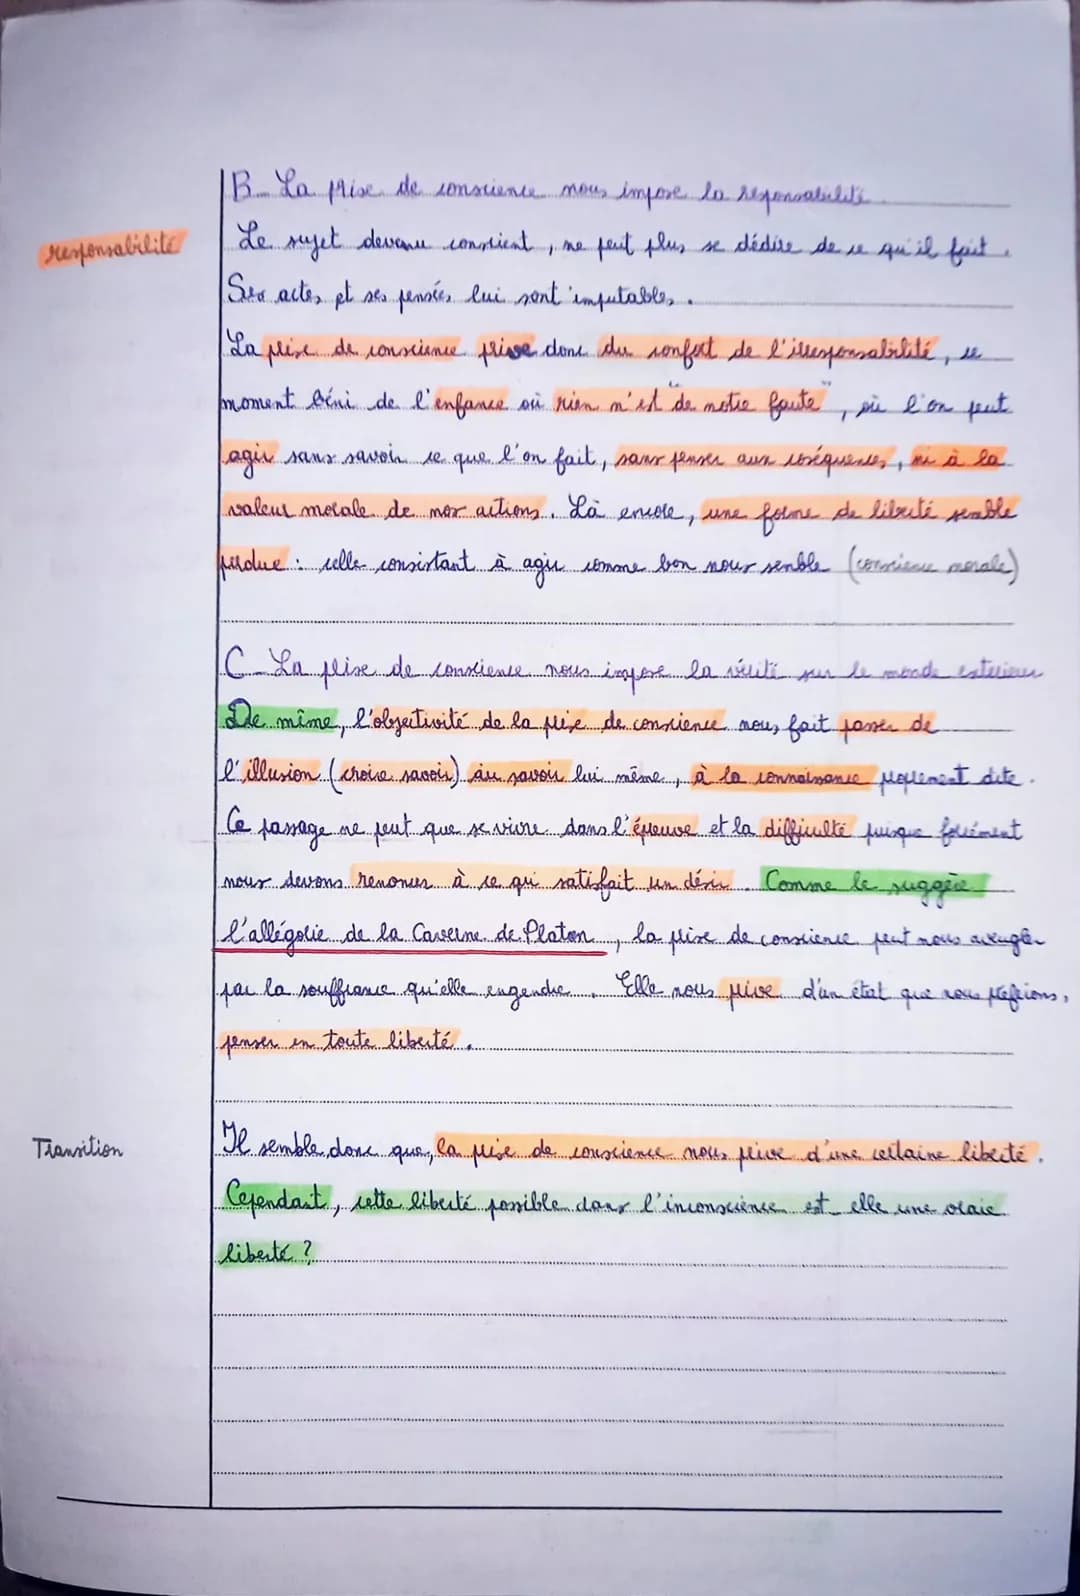 B_ La prise de conscience nous impose la responsabilité.
responsabilité
Le sujet devenu conscient, ne peut plus se dédire de ce qu'il fait.
Ses actes et ses pensées lui sont imputables.
La prise de conscience prive donc du confort de l'irresponsabilité, ce
moment béni de l'enfance où rien n'est "de notre faute", où l'on peut
agir sans savoir ce que l'on fait, sans penser aux coséquences, ni à la
valeur morale de nos actions. Là encore, une forme de liberté semble
perdue : celle consistant à agir comme bon nous semble (conscience morale)
C_ La prise de conscience nous impose la vérité sur le monde exterieur
De même, l'objectivité de la prise de conscience nous fait passer de
l'illusion (croire savoir) au savoir lui même, à la connaissance proprement dite.
Ce passage ne peut que se vivre dans l'épreuve et la difficulté puisque forcément
nous devons renoncer à ce qui satisfait un désir. Comme le suggère
l'allégorie de la Caverne de Platon, la prise de conscience peut nous aveugler
par la souffrance qu'elle engendre. Elle nous prive d'un état que nous préférions,
penser en toute liberté.
Transition
Il semble donc que, la prise de conscience nous prive d'une certaine liberté.
Cependant, cette liberté possible dans l'inconscience est_elle une vraie
liberté ?